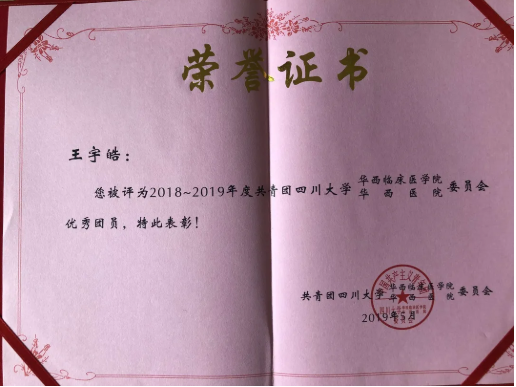 荣誉证书
王宇皓：
您被评为2018~2019年度共青团四川大学华西临床医学院华西医院委员会
优秀团员，特此表彰！
共青团四川大学华西临床医学院华西医院委员会
2019年5月